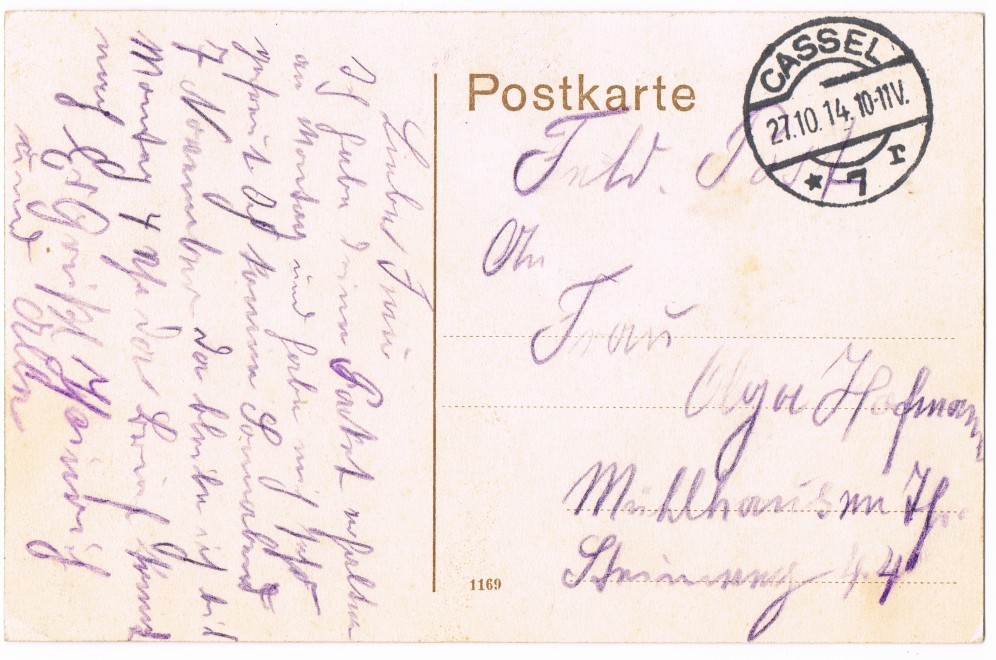 Postkarte
CASSEL
27.10.14. 10-11V.
* 7 r
Feld. Post
An
Frau
Olga Hofmann
Mühlhausen Th.
Steinweg 44
1169
Liebe Frau
Ich habe dein Packet erhalten
am Montag und habe mich sehr
gefreut Ich komme Sonnabend
7 November da bleibe ich bis
Montag 4 Uhr das
Heinrich